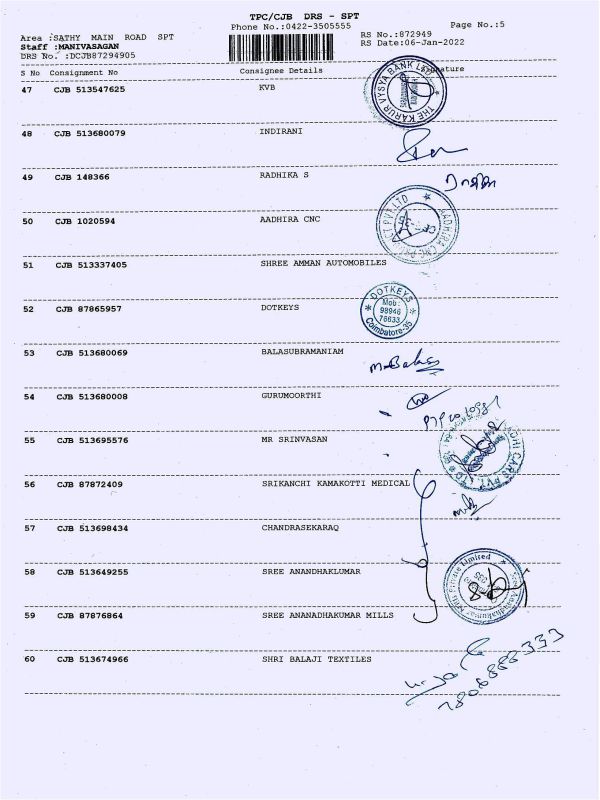 TPC/CJB DRS - SPT
Phone No.:0422-3505555
Page No.:5
Area :SATHY MAIN ROAD SPT
RS No.:872949
Staff :MANIVASAGAN
RS Date:06-Jan-2022
DRS No. :DCJB87294905
S No Consignment No Consignee Details
47 CJB 513547625 KVB
THE KARUR VYSYA BANK LTD
48 CJB 513680079 INDIRANI
49 CJB 148366 RADHIKA S
50 CJB 1020594 AADHIRA CNC
51 CJB 513337405 SHREE AMMAN AUTOMOBILES
52 CJB 87865957 DOTKEYS
DOTKEYS
Mob:
98946
76633
Coimbatore-35
53 CJB 513680069 BALASUBRAMANIAM
54 CJB 513680008 GURUMOORTHI
55 CJB 513695576 MR SRINVASAN
56 CJB 87872409 SRIKANCHI KAMAKOTTI MEDICAL
57 CJB 513698434 CHANDRASEKARAQ
58 CJB 513649255 SREE ANANDHAKLUMAR
59 CJB 87876864 SREE ANANADHAKUMAR MILLS
60 CJB 513674966 SHRI BALAJI TEXTILES